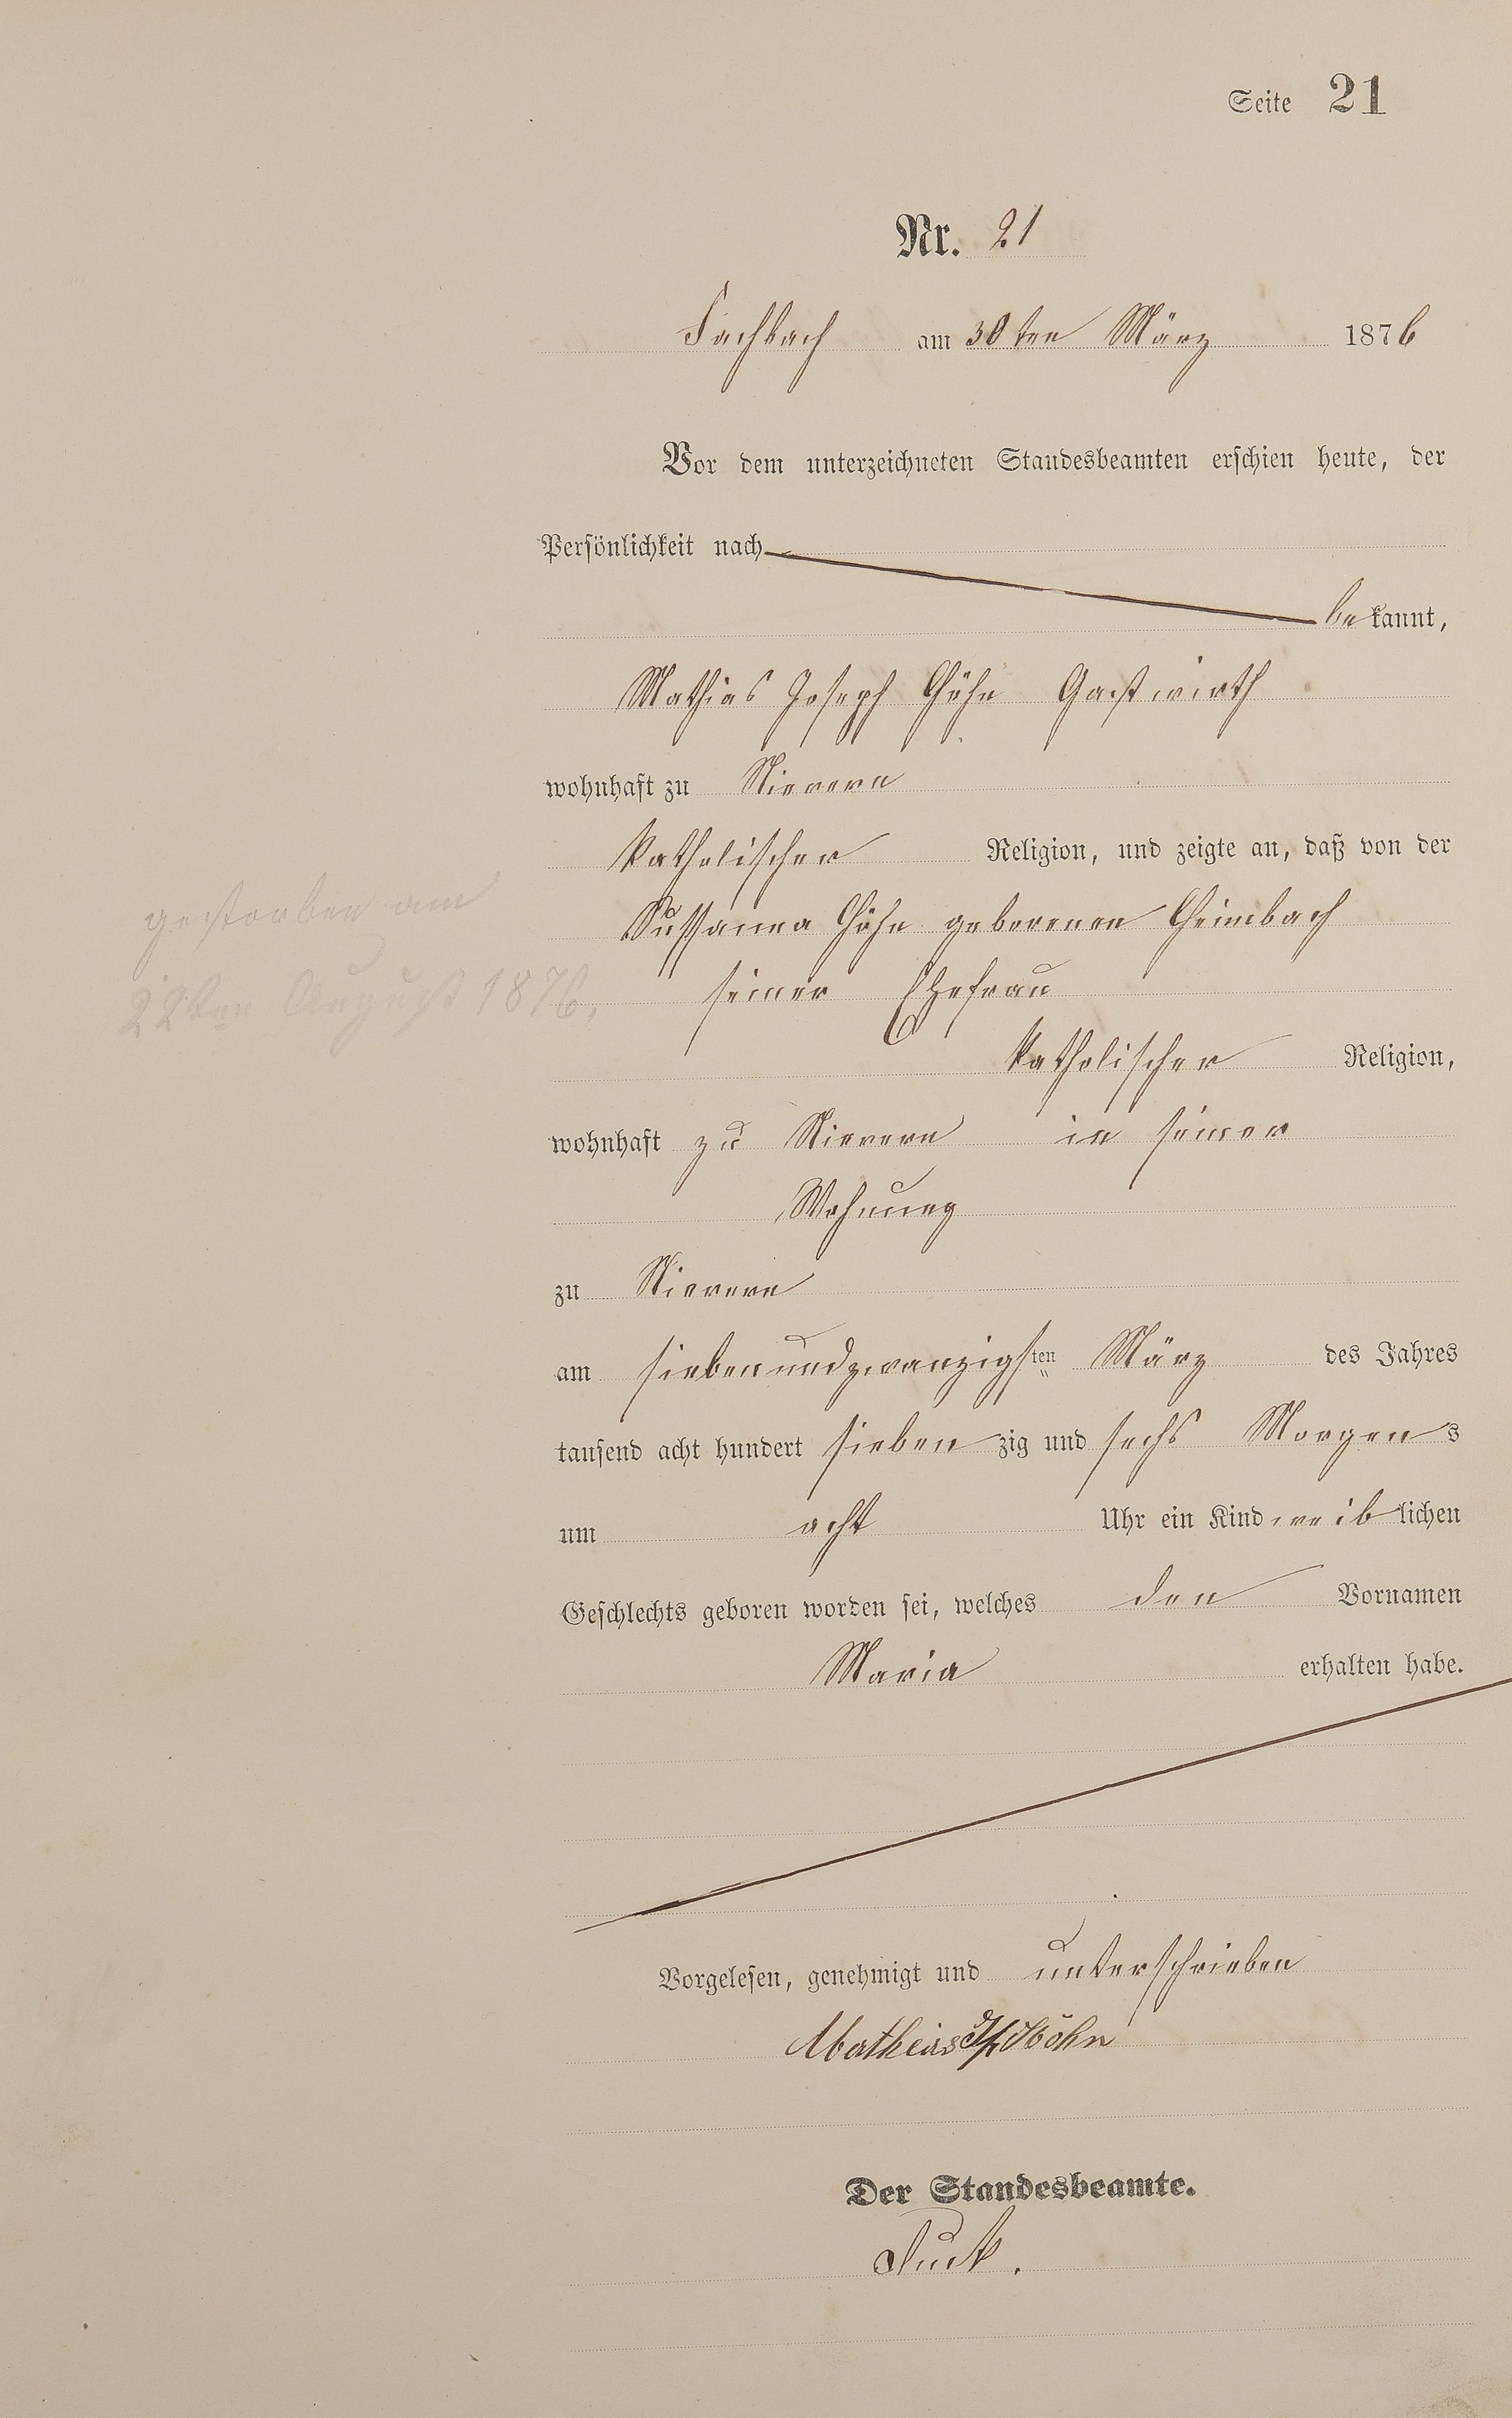 Seite 21
Nr. 21
Fachbach am 30ten März 1876
Vor dem unterzeichneten Standesbeamten erschien heute, der
Persönlichkeit nach
bekannt,
Mathias Joseph Höhn Gastwirth
wohnhaft zu Nievern
katholischer Religion, und zeigte an, daß von der
Sussanna Höhn geborenen Heimbach
seiner Ehefrau
katholischer Religion,
wohnhaft zu Nievern in seiner
Wohnung
zu Nievern
am siebenundzwanzigsten März des Jahres
tausend acht hundert siebenzig und sechs Morgens
um acht Uhr ein Kind weiblichen
Geschlechts geboren worden sei, welches den Vornamen
Maria erhalten habe.
Vorgelesen, genehmigt und unterschrieben
Matheias Höhn
Der Standesbeamte.
gestorben am
22ten August 1876.